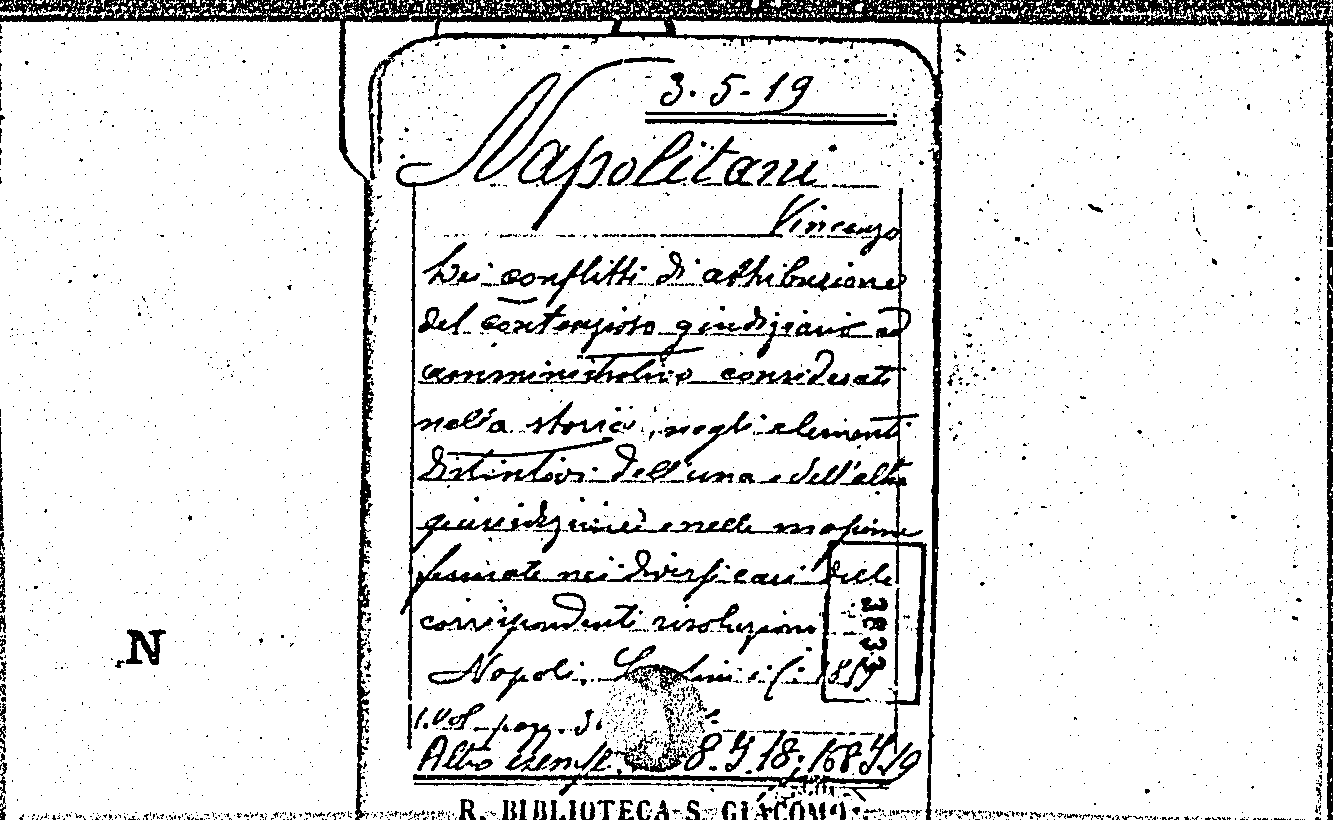 3-5-19
Napolitani
Vincenzo
Dei conflitti di attribuzione
del contenzioso giudiziario ed
amministrativo considerati
nella storia, negli elementi
distintivi dell'una e dell'altra
giurisdizione e nelle massime
fermate nei diversi casi delle
corrispondenti risoluzioni
Napoli. 1859
1. Vol. pag.
Altro esempl. 8.4.18; 168.4.19
3833
N
R. BIBLIOTECA S. GIACOMO